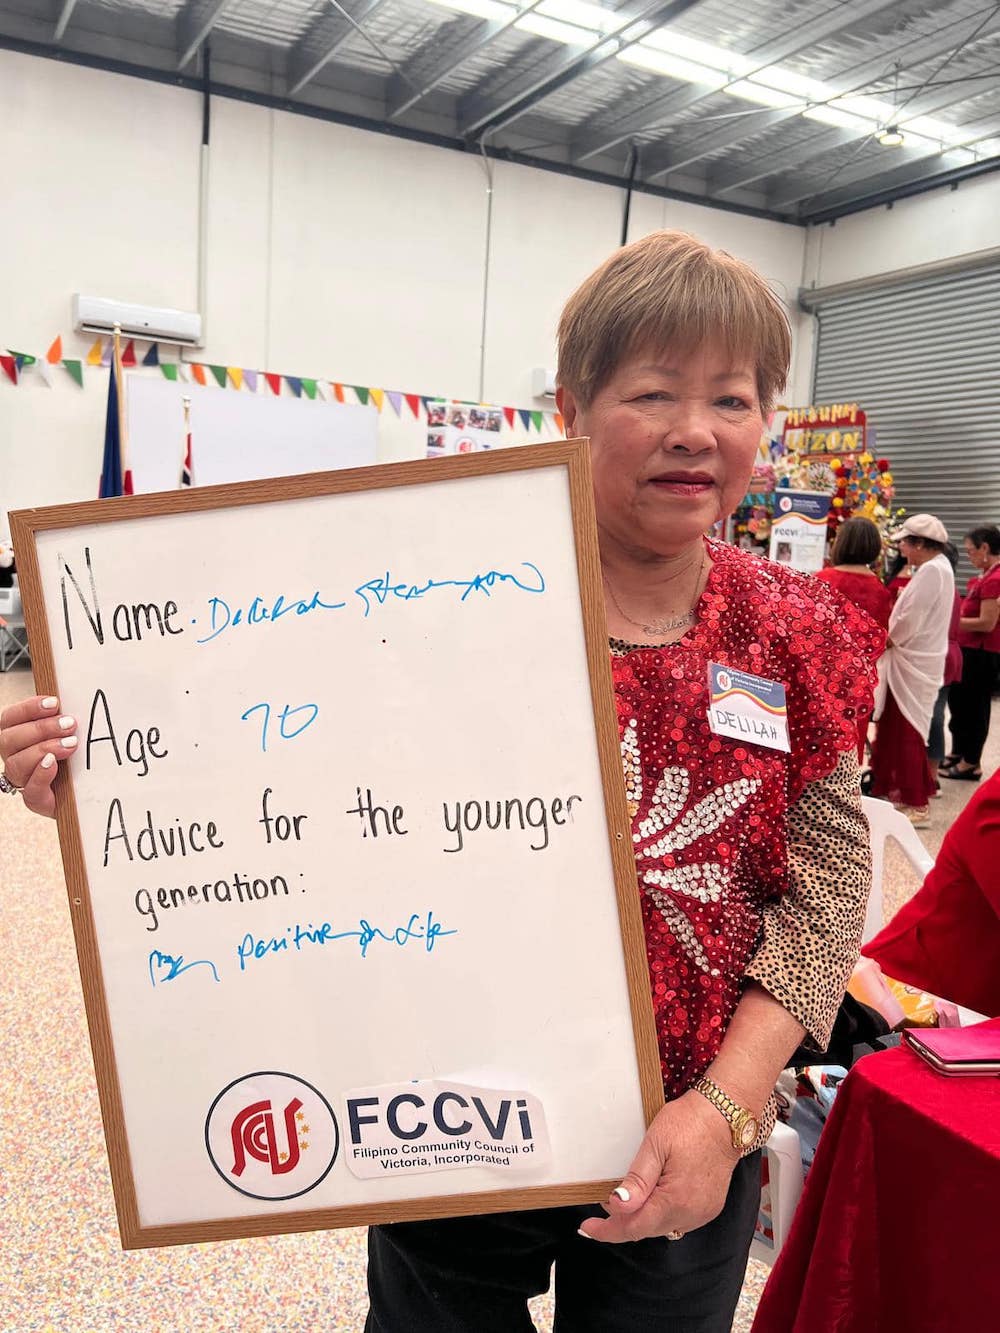 Name: Delilah Stevenson
Age: 70
Advice for the younger
generation:
Be positive in Life
FCCVi
Filipino Community Council of
Victoria, Incorporated
Filipino Community Council
of Victoria Incorporated
DELILAH
LUZON
FCCVi